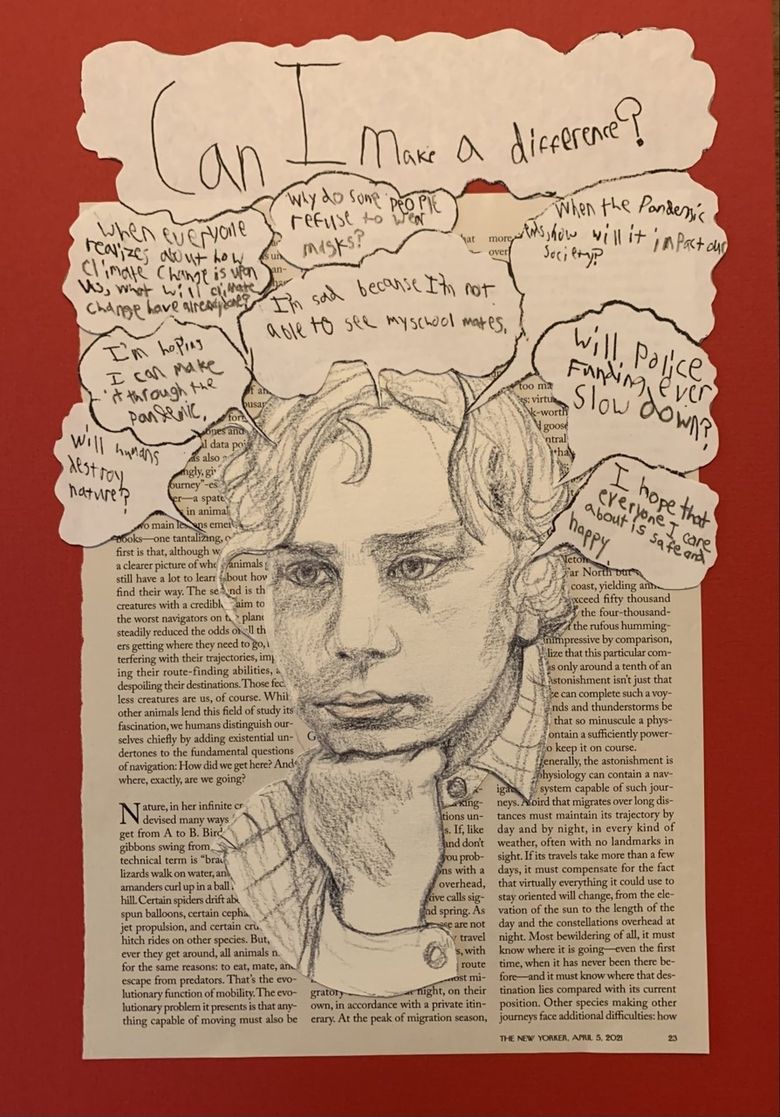 Can I make a difference?
when everyone
realizes about how
climate change is upon
us, what will climate
change have already done?
Why do some people
refuse to wear
masks?
When the Pandemic
ends, how will it impact our
society?
I'm sad because I'm not
able to see my school mates.
I'm hoping
I can make
it through the
pandemic.
Will police
Funding ever
slow down?
Will humans
destroy
nature?
I hope that
everyone I care
about is safe and
happy.
hat more
over
too ma
k-worth
goose
ones and
l data poi
s also
ourney"-es
er—a spate
in animal
wo main lessons emer
books—one tantalizing,
first is that, although w
a clearer picture of whe animals
still have a lot to learn about how
find their way. The se nd is th
creatures with a credibl aim to
the worst navigators on t plane
steadily reduced the odds of ll th
ers getting where they need to go,
terfering with their trajectories, imp
ing their route-finding abilities,
despoiling their destinations. Those fec
less creatures are us, of course. Whil
other animals lend this field of study its
fascination, we humans distinguish our-
selves chiefly by adding existential un-
dertones to the fundamental questions
of navigation: How did we get here? And
where, exactly, are we going?
Nature, in her infinite cr
devised many ways
get from A to B. Bird
gibbons swing from
technical term is "brac
lizards walk on water, an
amanders curl up in a ball
hill. Certain spiders drift abo
spun balloons, certain cepha
jet propulsion, and certain cru
hitch rides on other species. But,
ever they get around, all animals m
for the same reasons: to eat, mate, and
escape from predators. That's the evo-
lutionary function of mobility. The evo-
lutionary problem it presents is that any-
thing capable of moving must also be
king-
tions un-
s. If, like
nd don't
you prob-
ns with a
overhead,
ive calls sig-
nd spring. As
se are not
travel
s, with
route
most mi-
gratory night, on their
own, in accordance with a private itin-
erary. At the peak of migration season,
far North but
coast, yielding ann
xceed fifty thousand
the four-thousand-
f the rufous humming-
nimpressive by comparison,
lize that this particular com-
s only around a tenth of an
stonishment isn't just that
ze can complete such a voy-
nds and thunderstorms be
that so minuscule a phys-
ontain a sufficiently power-
o keep it on course.
enerally, the astonishment is
physiology can contain a nav-
iga system capable of such jour-
neys. A bird that migrates over long dis-
tances must maintain its trajectory by
day and by night, in every kind of
weather, often with no landmarks in
sight. If its travels take more than a few
days, it must compensate for the fact
that virtually everything it could use to
stay oriented will change, from the ele-
vation of the sun to the length of the
day and the constellations overhead at
night. Most bewildering of all, it must
know where it is going—even the first
time, when it has never been there be-
fore—and it must know where that des-
tination lies compared with its current
position. Other species making other
journeys face additional difficulties: how
THE NEW YORKER, APRIL 5, 2021 23